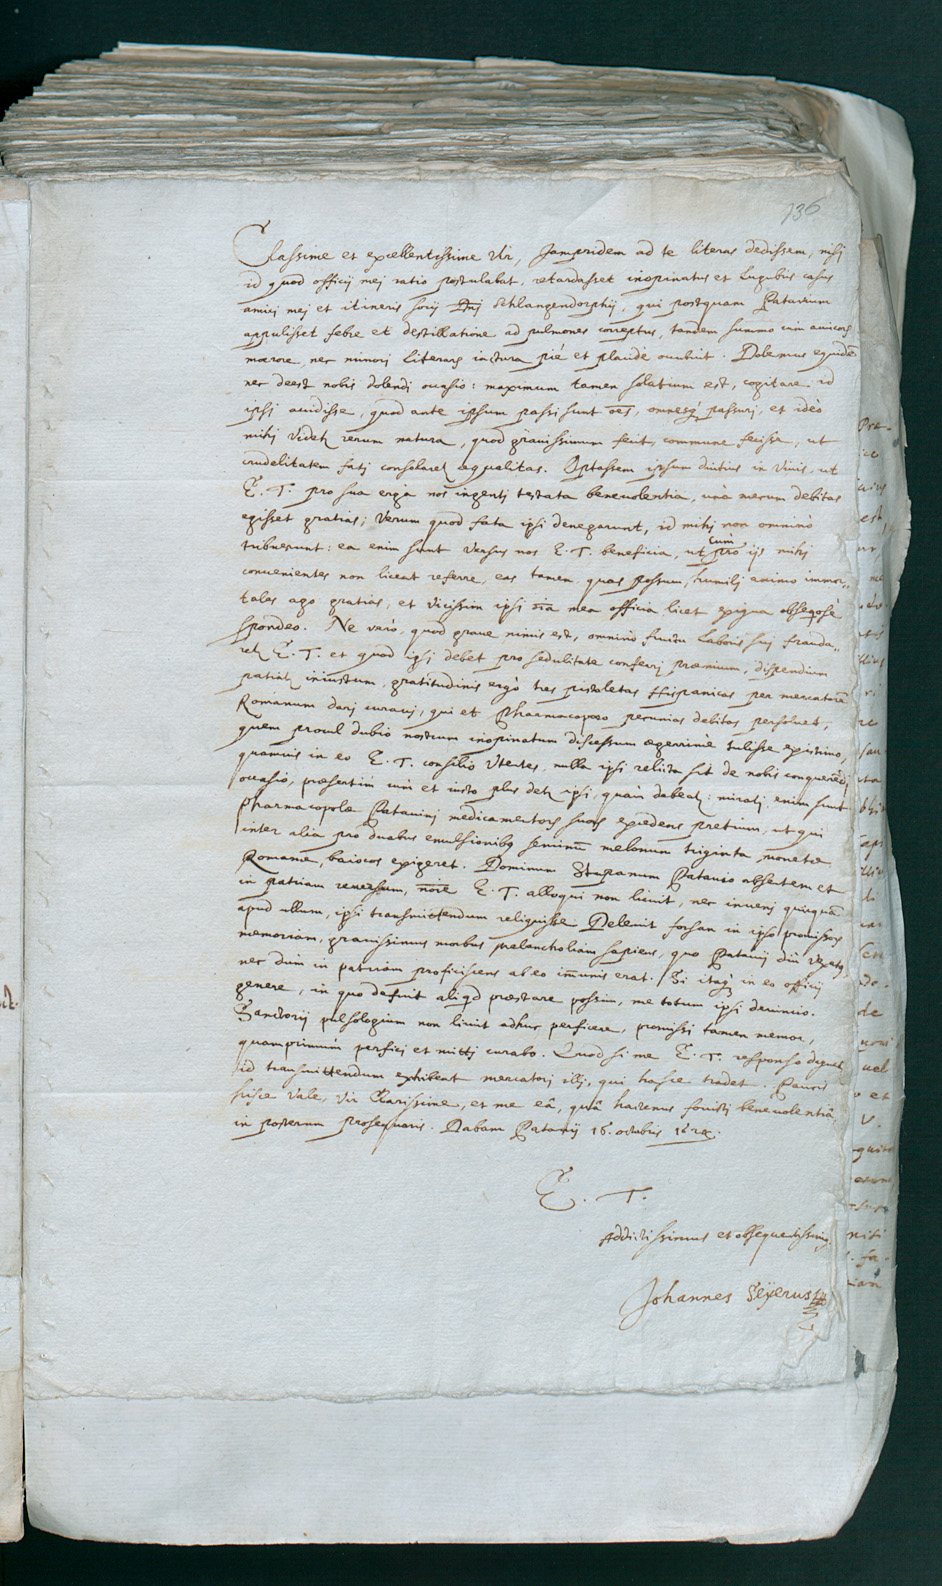 736
Clarissime et excellentissime Vir, Jampridem ad te literas dedissem, nisj
id quod officij mej ratio postulabat, retardasset inopinatus et lugubris casus
amicj mej et itineris socij Dnj Schlangendorphij, qui postquam Patavium
appulisset febre et destillatione ad pulmones correptus, tandem summo cum amicorum
mœrore, nec minorj literarum iactura piè et placidè occubuit. Dolemus equidē
nec deest nobis dolendj occasio: maximum tamen solatium est, cogitare id
ipsj accidisse, quod ante ipsum passi sunt oēs, omnesq passurj, et ideò
mihj videt rerum natura, quod gravissimum fecit, commune fecisse, ut
crudelitatem fatj consolaret æqualitas. Optassem ipsum diutius in vivis, ut
E. T. pro sua ergà nos ingentj testata benevolentia, unà mecum debitas
egisset gratias; Verum quod fata ipsi denegarunt, id mihj non omninò
tribuerunt: ea enim sunt versus nos E. T. beneficia, ut cùm pro ijs mihj
convenientes non liceat referre, eas tamen quas possum, humilj animo immor„
tales ago gratias, et vicissim ipsi oīa mea officia licet exigua obseqosè
spondeo. Ne verò, quod grave nimis est, omninò fructu laboris suj frauda„
ret E. T. et quod ipsj debet pro sedulitate conferrj præmium, dispendium
patiat iniustum, gratitudinis ergò tres pistoletas Hispanicas per mercatorē
Romanum darj curavj, qui et Pharmacopœo pecunias debitas persolvet;
quem procul dubio nostrum inopinatum discessum ægerrimè tulisse existimo,
quamvis in eo E. T. consilio utētes, nulla ipsj relicta sit de nobis conquerēdj
occasio, præsertim cùm et iusto plus det ipsi, quàm debeat: miratj enim sunt
Pharmacopolæ Patavinj medicamentorum suorum excedens pretium, ut qui
inter alia pro duabus emulsionibq seminū melonum triginta, monetæ
Romanæ, baiocos exigeret. Dominum Stupanum Patavio absentem et
in patriam reversum, noīe E. T. alloqui non licuit, nec invenj quicquā
apud ullum, ipsj transmittendum reliquisse. Delevit forsan in ipso promissorum
memoriam, gravissimus morbus melancholiam sapiens, quo Patavij diù vexatq
nec dum in patriam proficisciens ab eo im̄unis erat. Si itaq in eo officij
genere, in quo defuit aliqd præstare possim, me totum ipsj devincio.
Sanctorij pulsologium non licuit adhuc perficere, promissi tamen memor,
quamprimùm perficj et mittj curabo. Quod si me E. T. responso dignet
id transmittendum exhibeat mercatorj illj, qui hasce tradet. Paucis
hisce Vale, Vir Clarissime, et me eâ, quâ hactenus fovisti benevolentiâ,
in posterum prosequaris. Dabam Patavij 16. octobris
E. T.
Addictissimus et obsequentissimq
Johannes